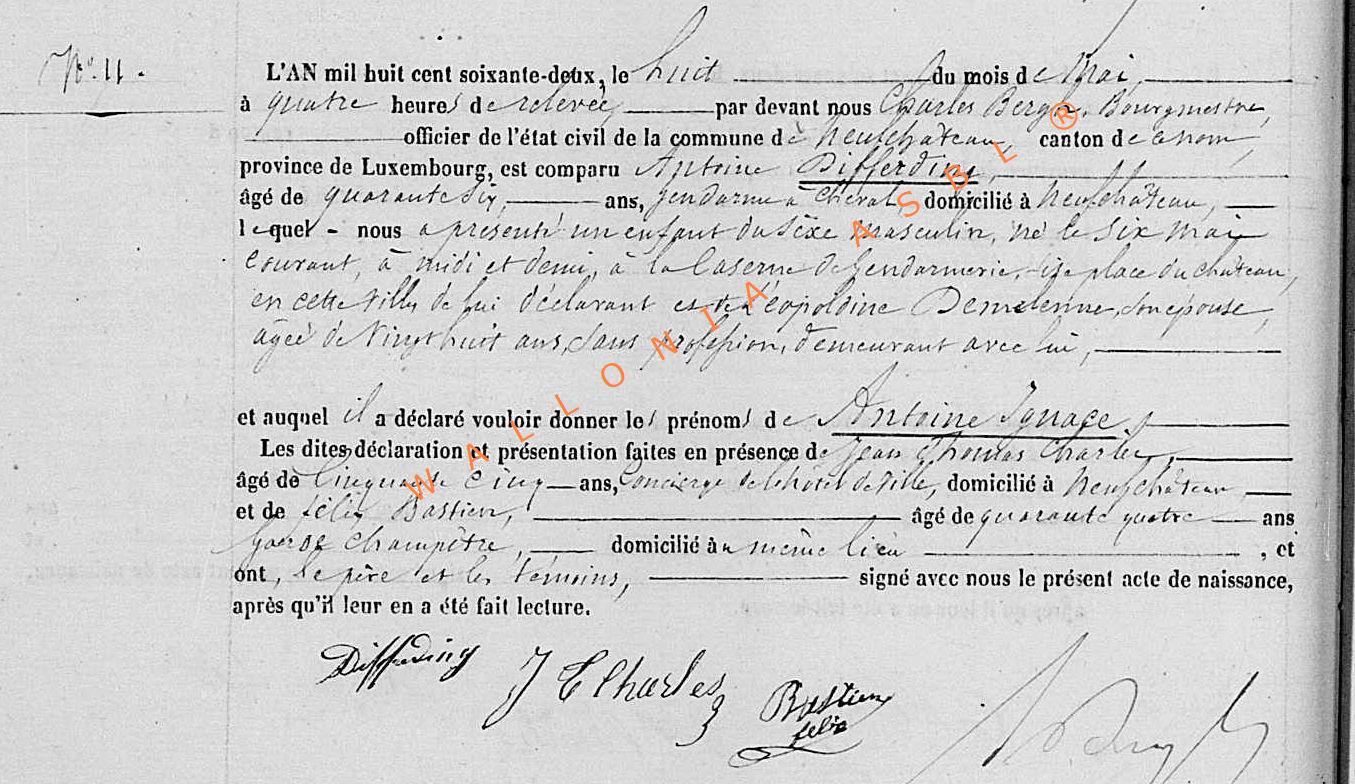 N° 11.
L'AN mil huit cent soixante-deux, le huit du mois de Mai,
à quatre heures de relevée, par devant nous Charles Bergh, Bourgmestre,
officier de l'état civil de la commune de Neufchâteau, canton de ce nom,
province de Luxembourg, est comparu Antoine Differding,
âgé de quarante six, ans, gendarme à cheval, domicilié à Neufchâteau,
lequel - nous a présenté un enfant du sèxe masculin, né le six Mai
courant, à midi et demi, à la Caserne de Gendarmerie, sise place du château,
en cette ville, de lui déclarant et de Léopoldine Demelenne, son épouse,
agée de vingt huit ans, sans profession, demeurant avec lui,
et auquel il a déclaré vouloir donner les prénoms de Antoine Ignace.
Les dites déclaration et présentation faites en présence de Jean Thomas Charles,
âgé de Cinquante Cinq ans, Concierge de l'hôtel de Ville, domicilié à Neufchâteau
et de félix Bastien, âgé de quarante quatre ans
garde champêtre, domicilié au même lieu , et
ont, le père et les témoins, signé avec nous le présent acte de naissance,
après qu'il leur en a été fait lecture.
Differding
J T Charles
Bastien
felix
WALLONIA ASBL ®